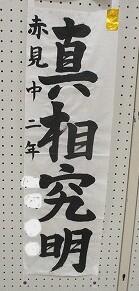 真相究明
赤見中二年